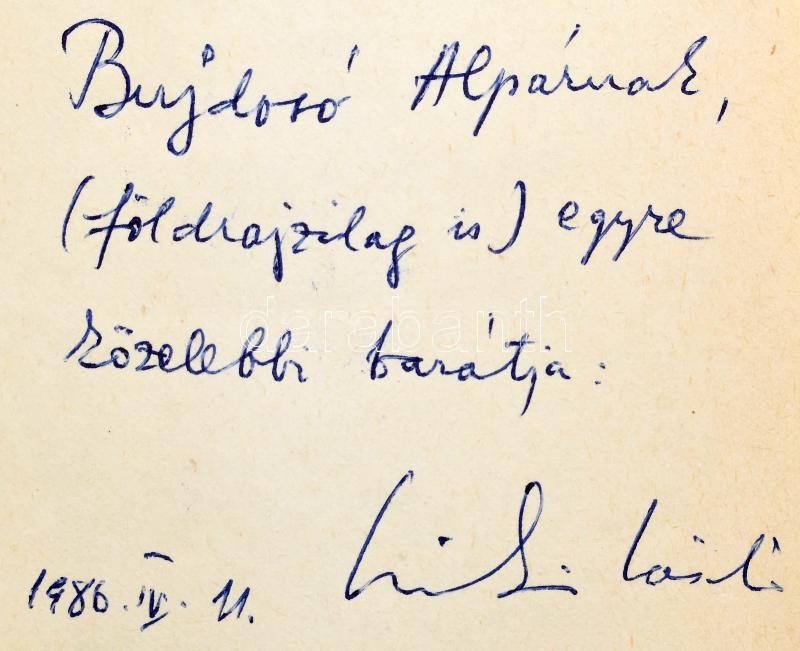 Bujdosó Alpárnak,
(földrajzilag is) egyre
közelebbi barátja:
László
1986. IV. 11.
darabanth